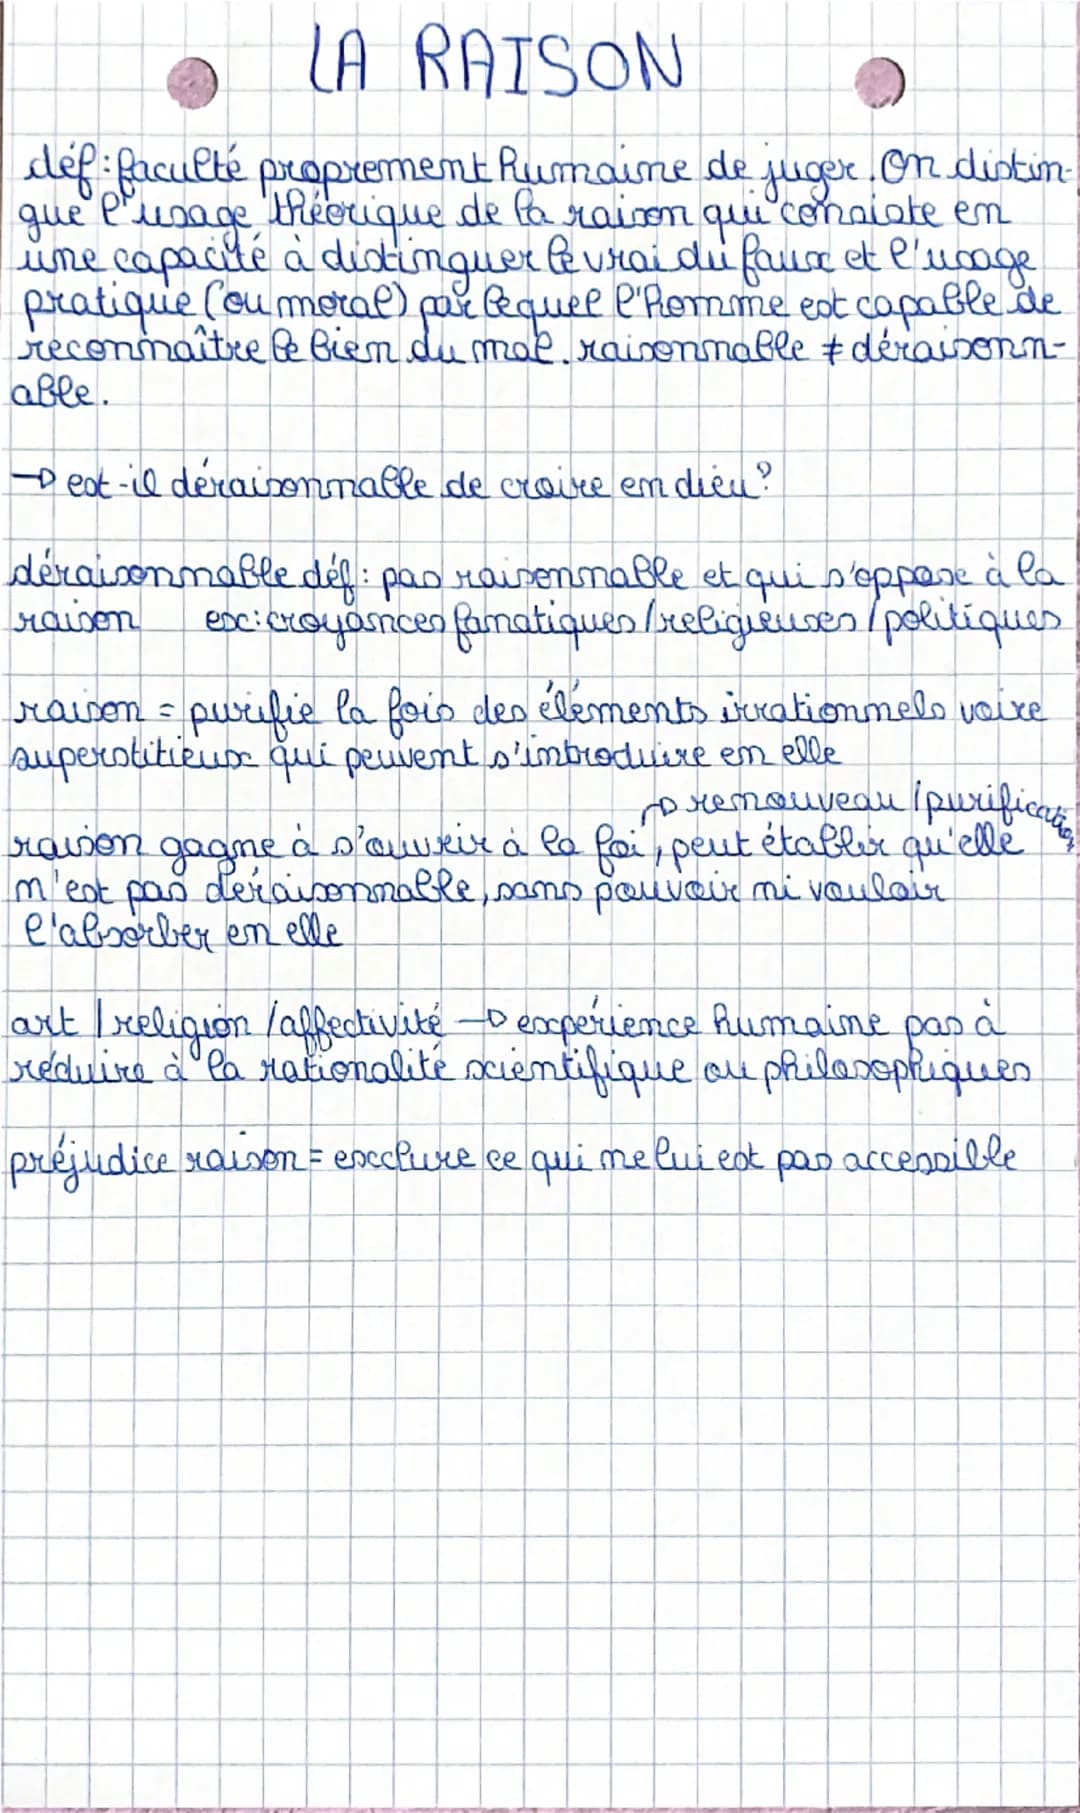 LA RAISON
déf : faculté proprement humaine de juger. On distin-
gue l'usage théorique de la raison qui consiste en
une capacité à distinguer le vrai du faux et l'usage
pratique (ou moral) par lequel l'homme est capable de
reconnaître le bien du mal. raisonnable ≠ déraisonn-
able.
→ est-il déraisonnable de croire en dieu ?
déraisonnable déf : pas raisonnable et qui s'oppose à la
raison ex : croyances fanatiques / religieuses / politiques
raison = purifie la fois des éléments irrationnels voire
superstitieux qui peuvent s'introduire en elle
→ renouveau / purification
raison gagne à s'ouvrir à la foi, peut établir qu'elle
n'est pas déraisonnable, sans pouvoir ni vouloir
l'absorber en elle
art / religion / affectivité → expérience humaine pas à
réduire à la rationalité scientifique ou philosophiques
préjudice raison = exclure ce qui ne lui est pas accessible